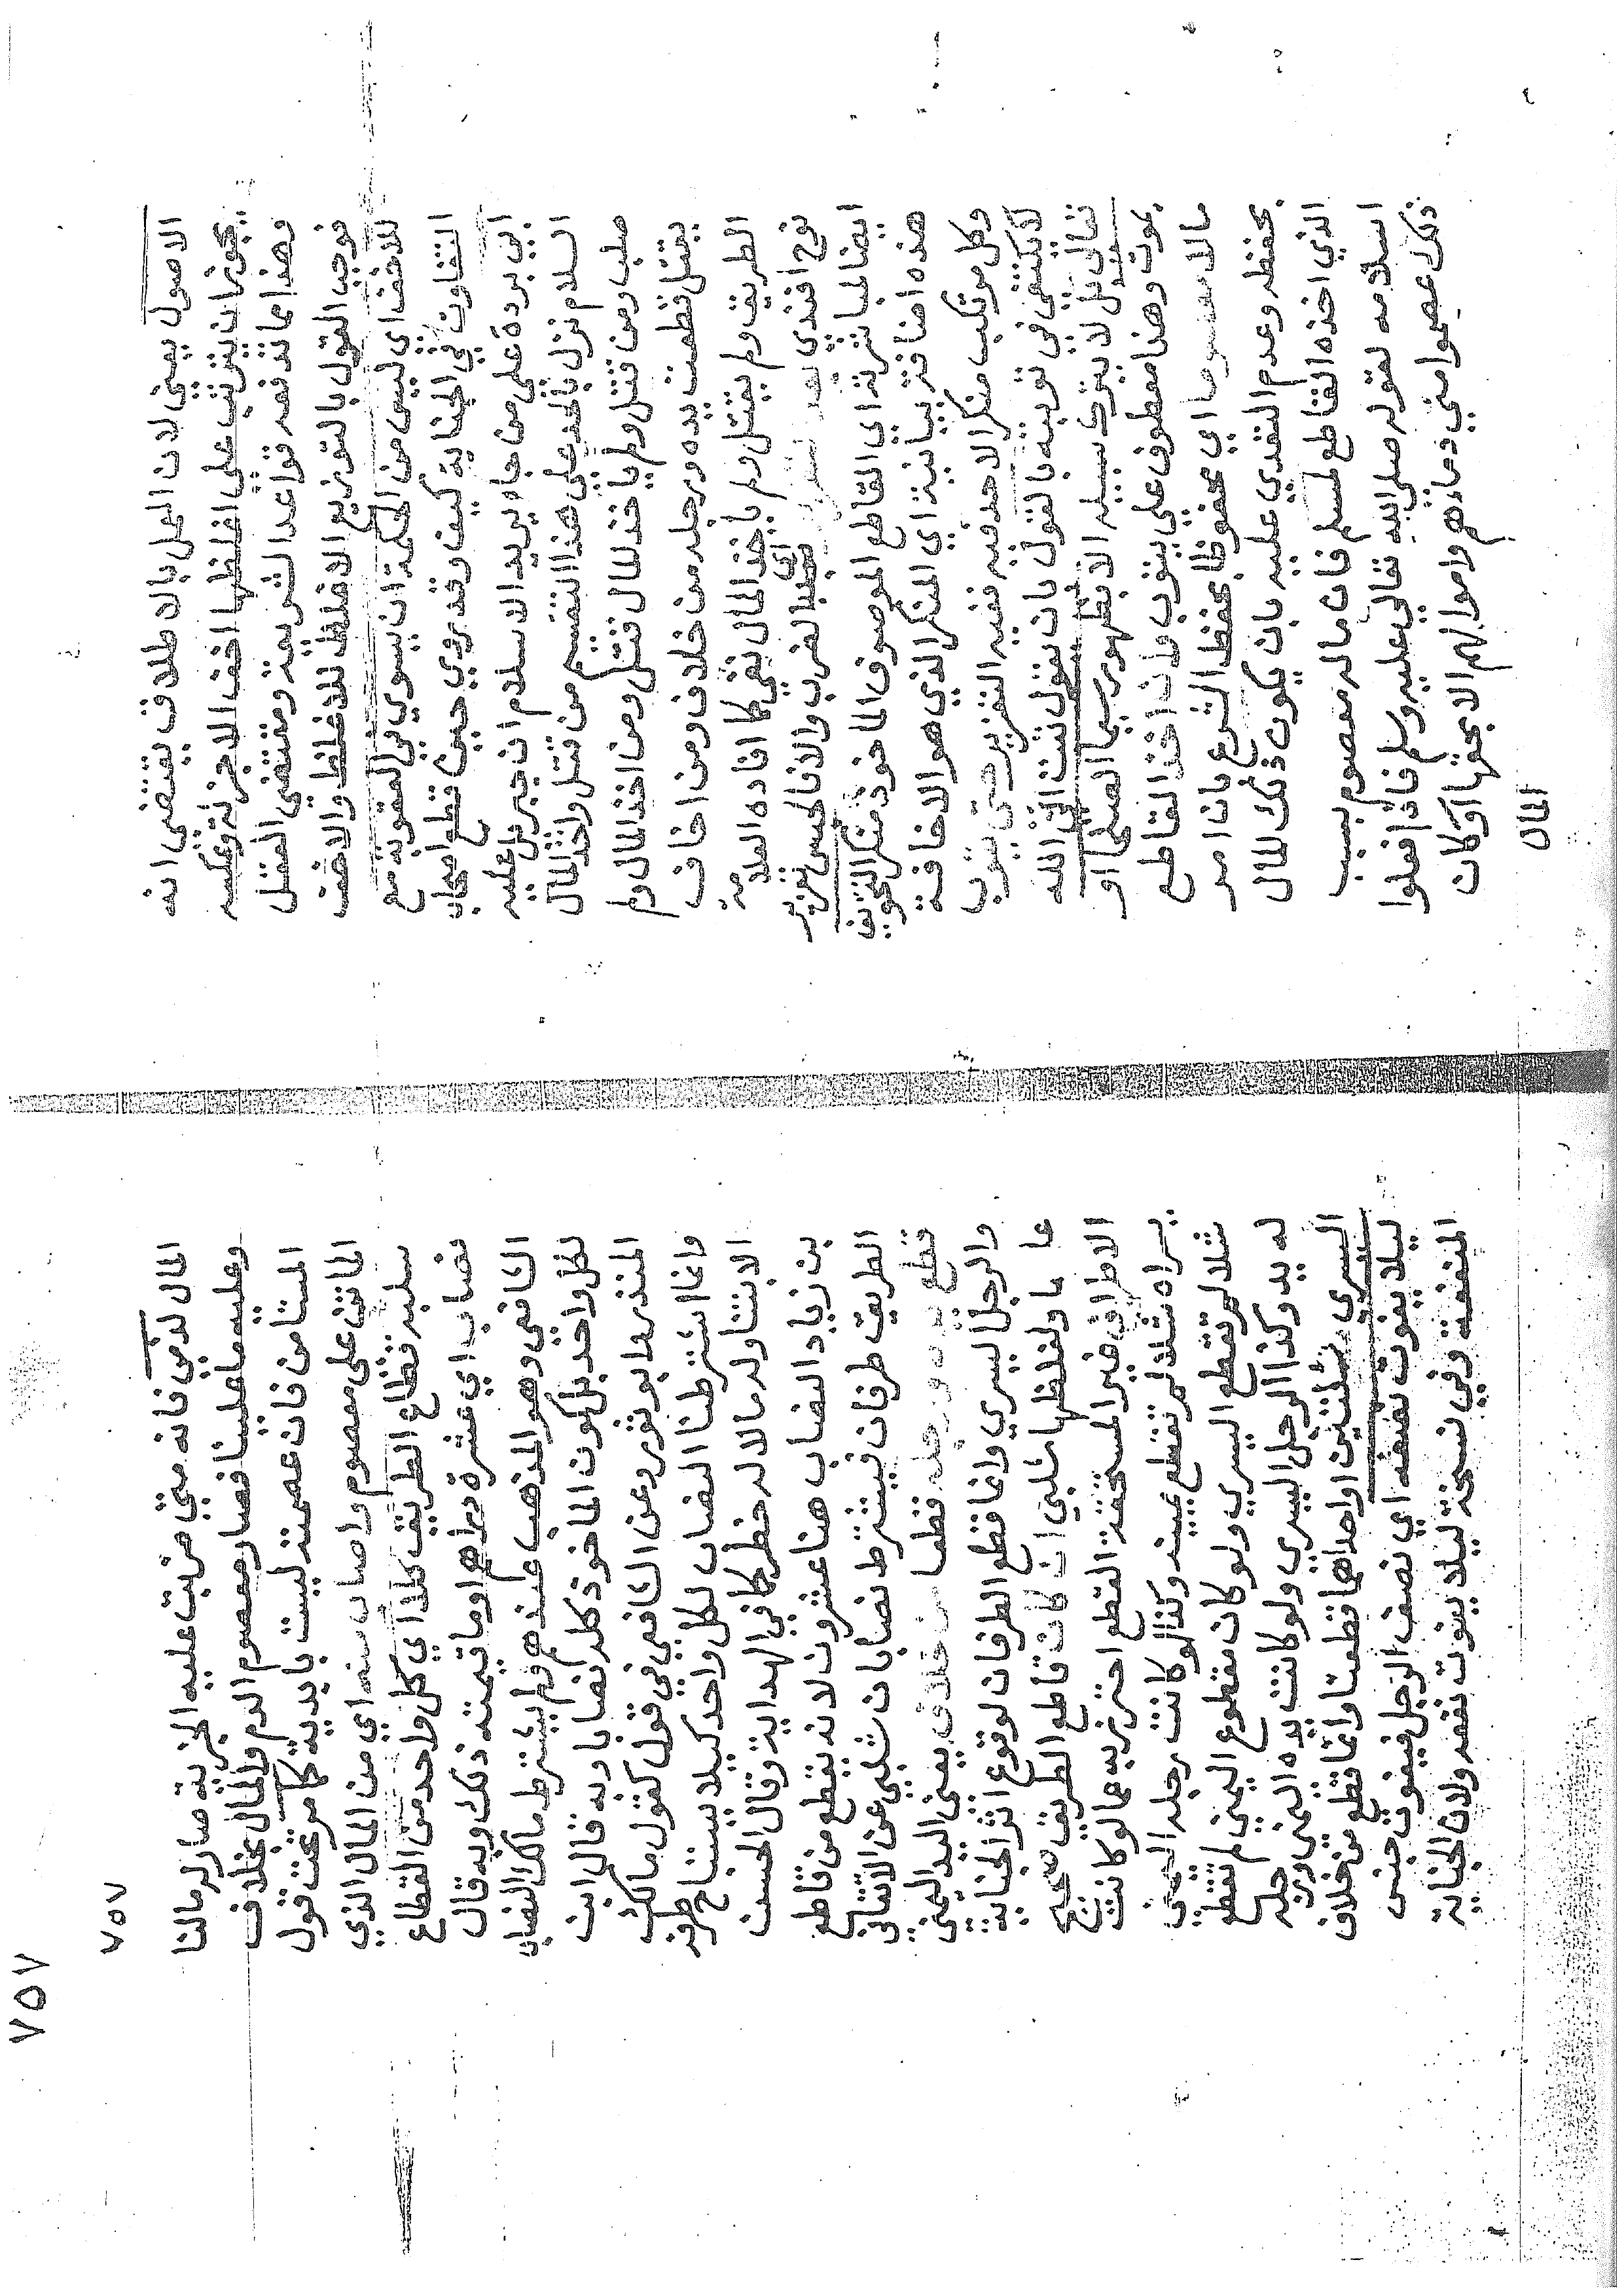 الاصول يعني لان العمل بالاطلاق يقتضي انه
يجوز ان يترتب على اغلظها اخف الاجزئة وعكسه
وهذا مما تدفعه قواعد الشريعة ومقتضى العقل
فوجب القول بالتوزيع الاغلظ للاغلظ والاخف
للاخف اي ليس من الحكمة ان يسوي في العقوبة مع
التفاوت في الجناية كيف وقد روي حين قطع اصحاب
ابي بردة على من جاء يريد الاسلام ان جبريل عليه
السلام نزل بالحد على هذا التقسيم من قتل واخذ المال
صلب ومن قتل ولم ياخذ المال قتل ومن اخذ المال ولم
يقتل قطعت يده ورجله من خلاف ومن اخاف
الطريق ولم يقتل ولم ياخذ المال نفي كما افاده العلامة
نوح افندي بعد الضرب والا فالحبس تعزير
ايضا لمباشرته اي القاطع الموصوف الماخوذ منكر التخويف
هذه اضافة بيانية اي المنكر الذي هو الاخافة
وكل مرتكب منكر الا حد فيه ففيه التعزير حتى يتوب
لا يكتفي في توبته بالقول بان يقول تبت الى الله
تعالى بل لا يترك سبيله الا بظهور سيما الصلحا او
يموت وهنا معطوف على يتوب وان اخذ القاطع
مالا معصوما اي محفوظا بحفظ الشرع بان امر
بحفظه وعدم التعدي عليه بان يكون ذلك المال
الذي اخذه القاطع لمسلم فان ماله معصوم بسبب
اسلامه لقوله صلى الله تعالى عليه وسلم فاذا فعلوا
ذلك عصموا مني دماءهم واموالهم الا بحقها او كان
المال
٧٥٧
٧٥٧
المال لذمي فانه متى ضربت عليه الجزية صار له مالنا
وعليه ما علينا فصار معصوم الدم والمال بخلاف
المستامن فان عصمته ليست بابدية كما مر تحت قول
الماتن على معصوم واصاب منه اي من المال الذي
سلبه قطاع الطريق كلا اي كل واحد من القطاع
نصاب اي عشرة دراهم او ما قيمته ذلك وبه قال
الشافعي وهو المذهب عندهم ولم يشترط مالك النصاب
لكل واحد بل كون الماخوذ كله نصابا وبه قال ابن
المنذر وابو ثور وعن الشافعي في قول كقول مالك
وانما اشترطنا النصاب لكل واحد كيلا يستباح طرفه
الا بتناوله مالا له خطر كما في الهداية وقال الحسن
بن زياد النصاب هنا عشرون لانه يقطع من قاطع
الطريق طرفان فيشترط نصابان شلبي عن الاتقاني
قطع يده ورجله قطعا من خلاف يعني اليد اليمنى
والرجل اليسرى وانما قطع الطرفان لوقوع اثر الجناية
عاما ولغلظها شلبي ان كان قاطع الطريق صحيح
الاطراف غير المستحقة القطع احترز به عما لو كانت
يسراه شلا لم تقطع يمينه وكذا لو كانت رجله اليمنى
شلا لم تقطع اليسرى ولو كان مقطوع اليمنى لم تقطع
له يد وكذا الرجل اليسرى ولو كانت يده اليمنى ورجله
اليسرى شلتين او احداهما قطعتا وانما قطع من خلاف
ليلا يفوت نصفه اي نصف الرجل فيفوت جنس
المنفعة وفي نسخة ليلا يفوت نفعه ولان الجناية